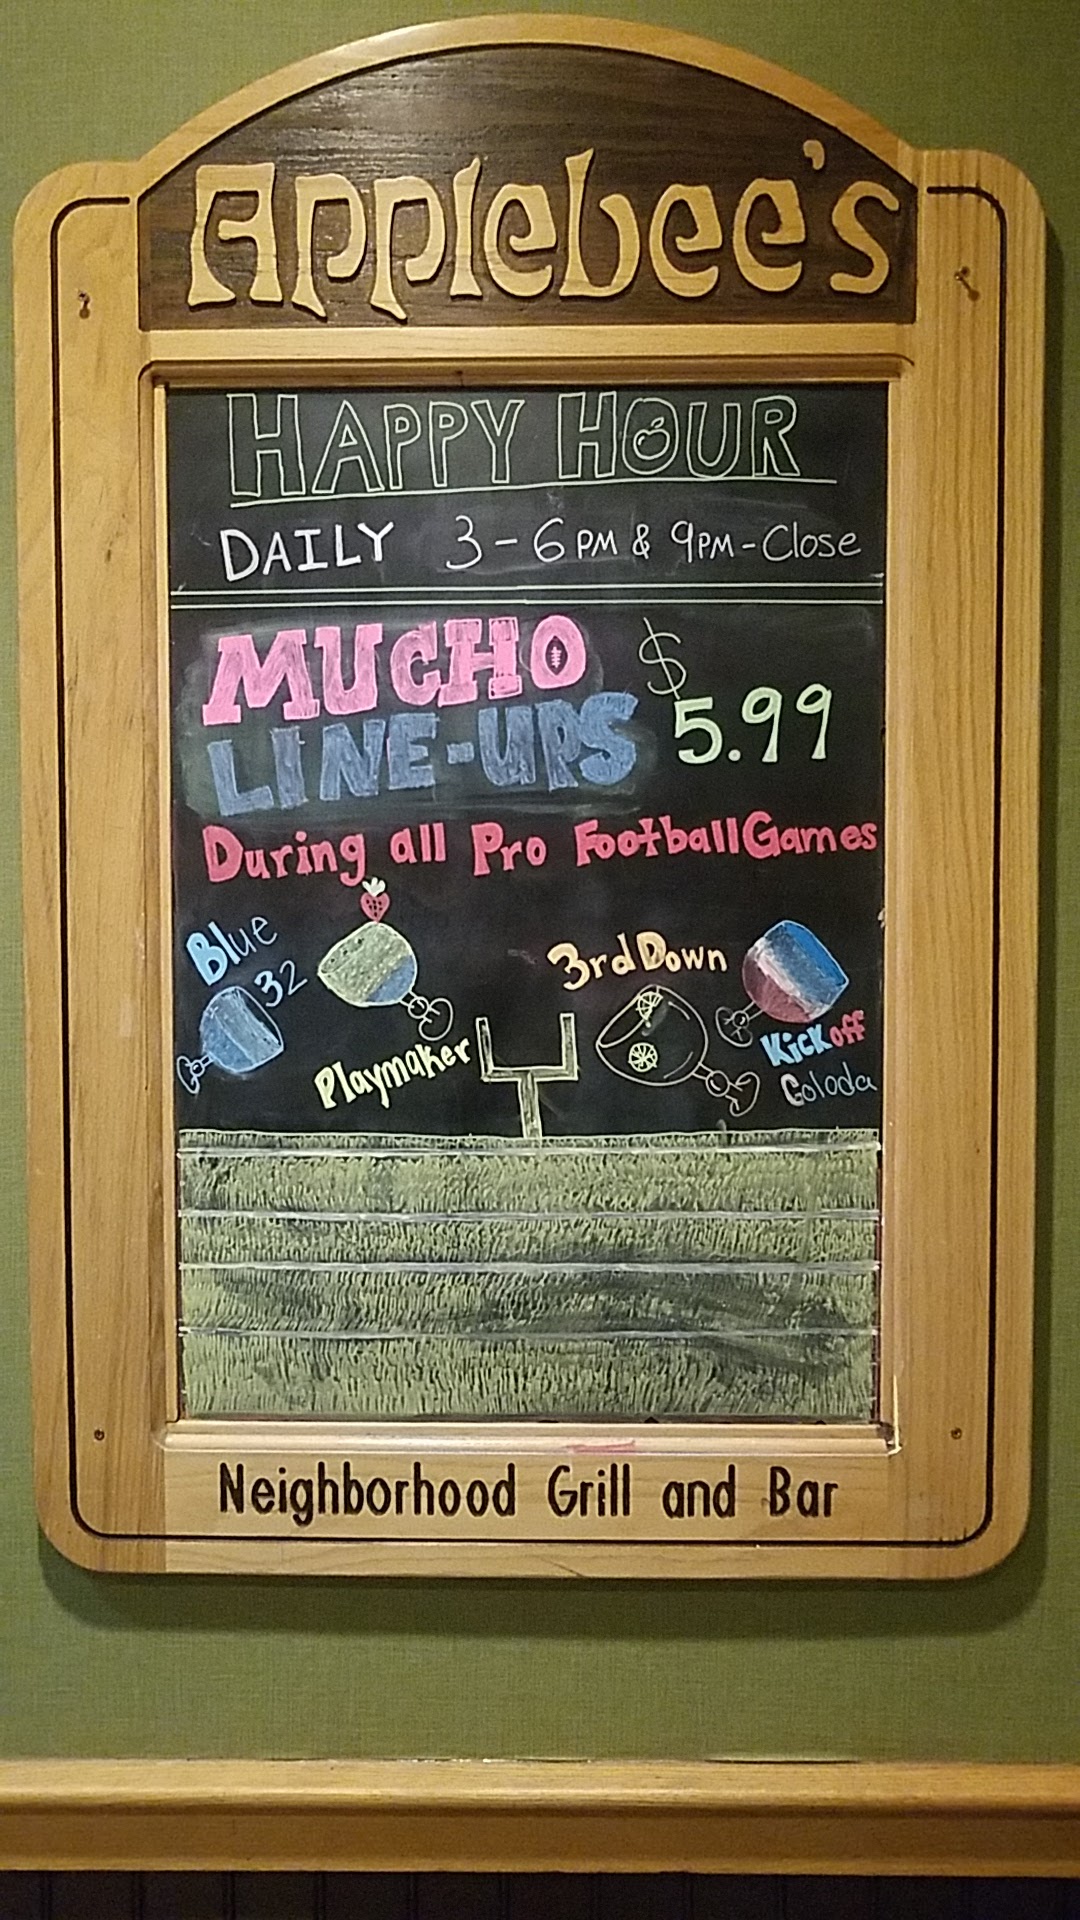 Applebee's
HAPPY HOUR
DAILY 3-6PM & 9PM-Close
MUCHO
LINE-UPS
$5.99
During all Pro Football Games
Blue
32
Playmaker
3rd Down
Kickoff
Coloda
Neighborhood Grill and Bar